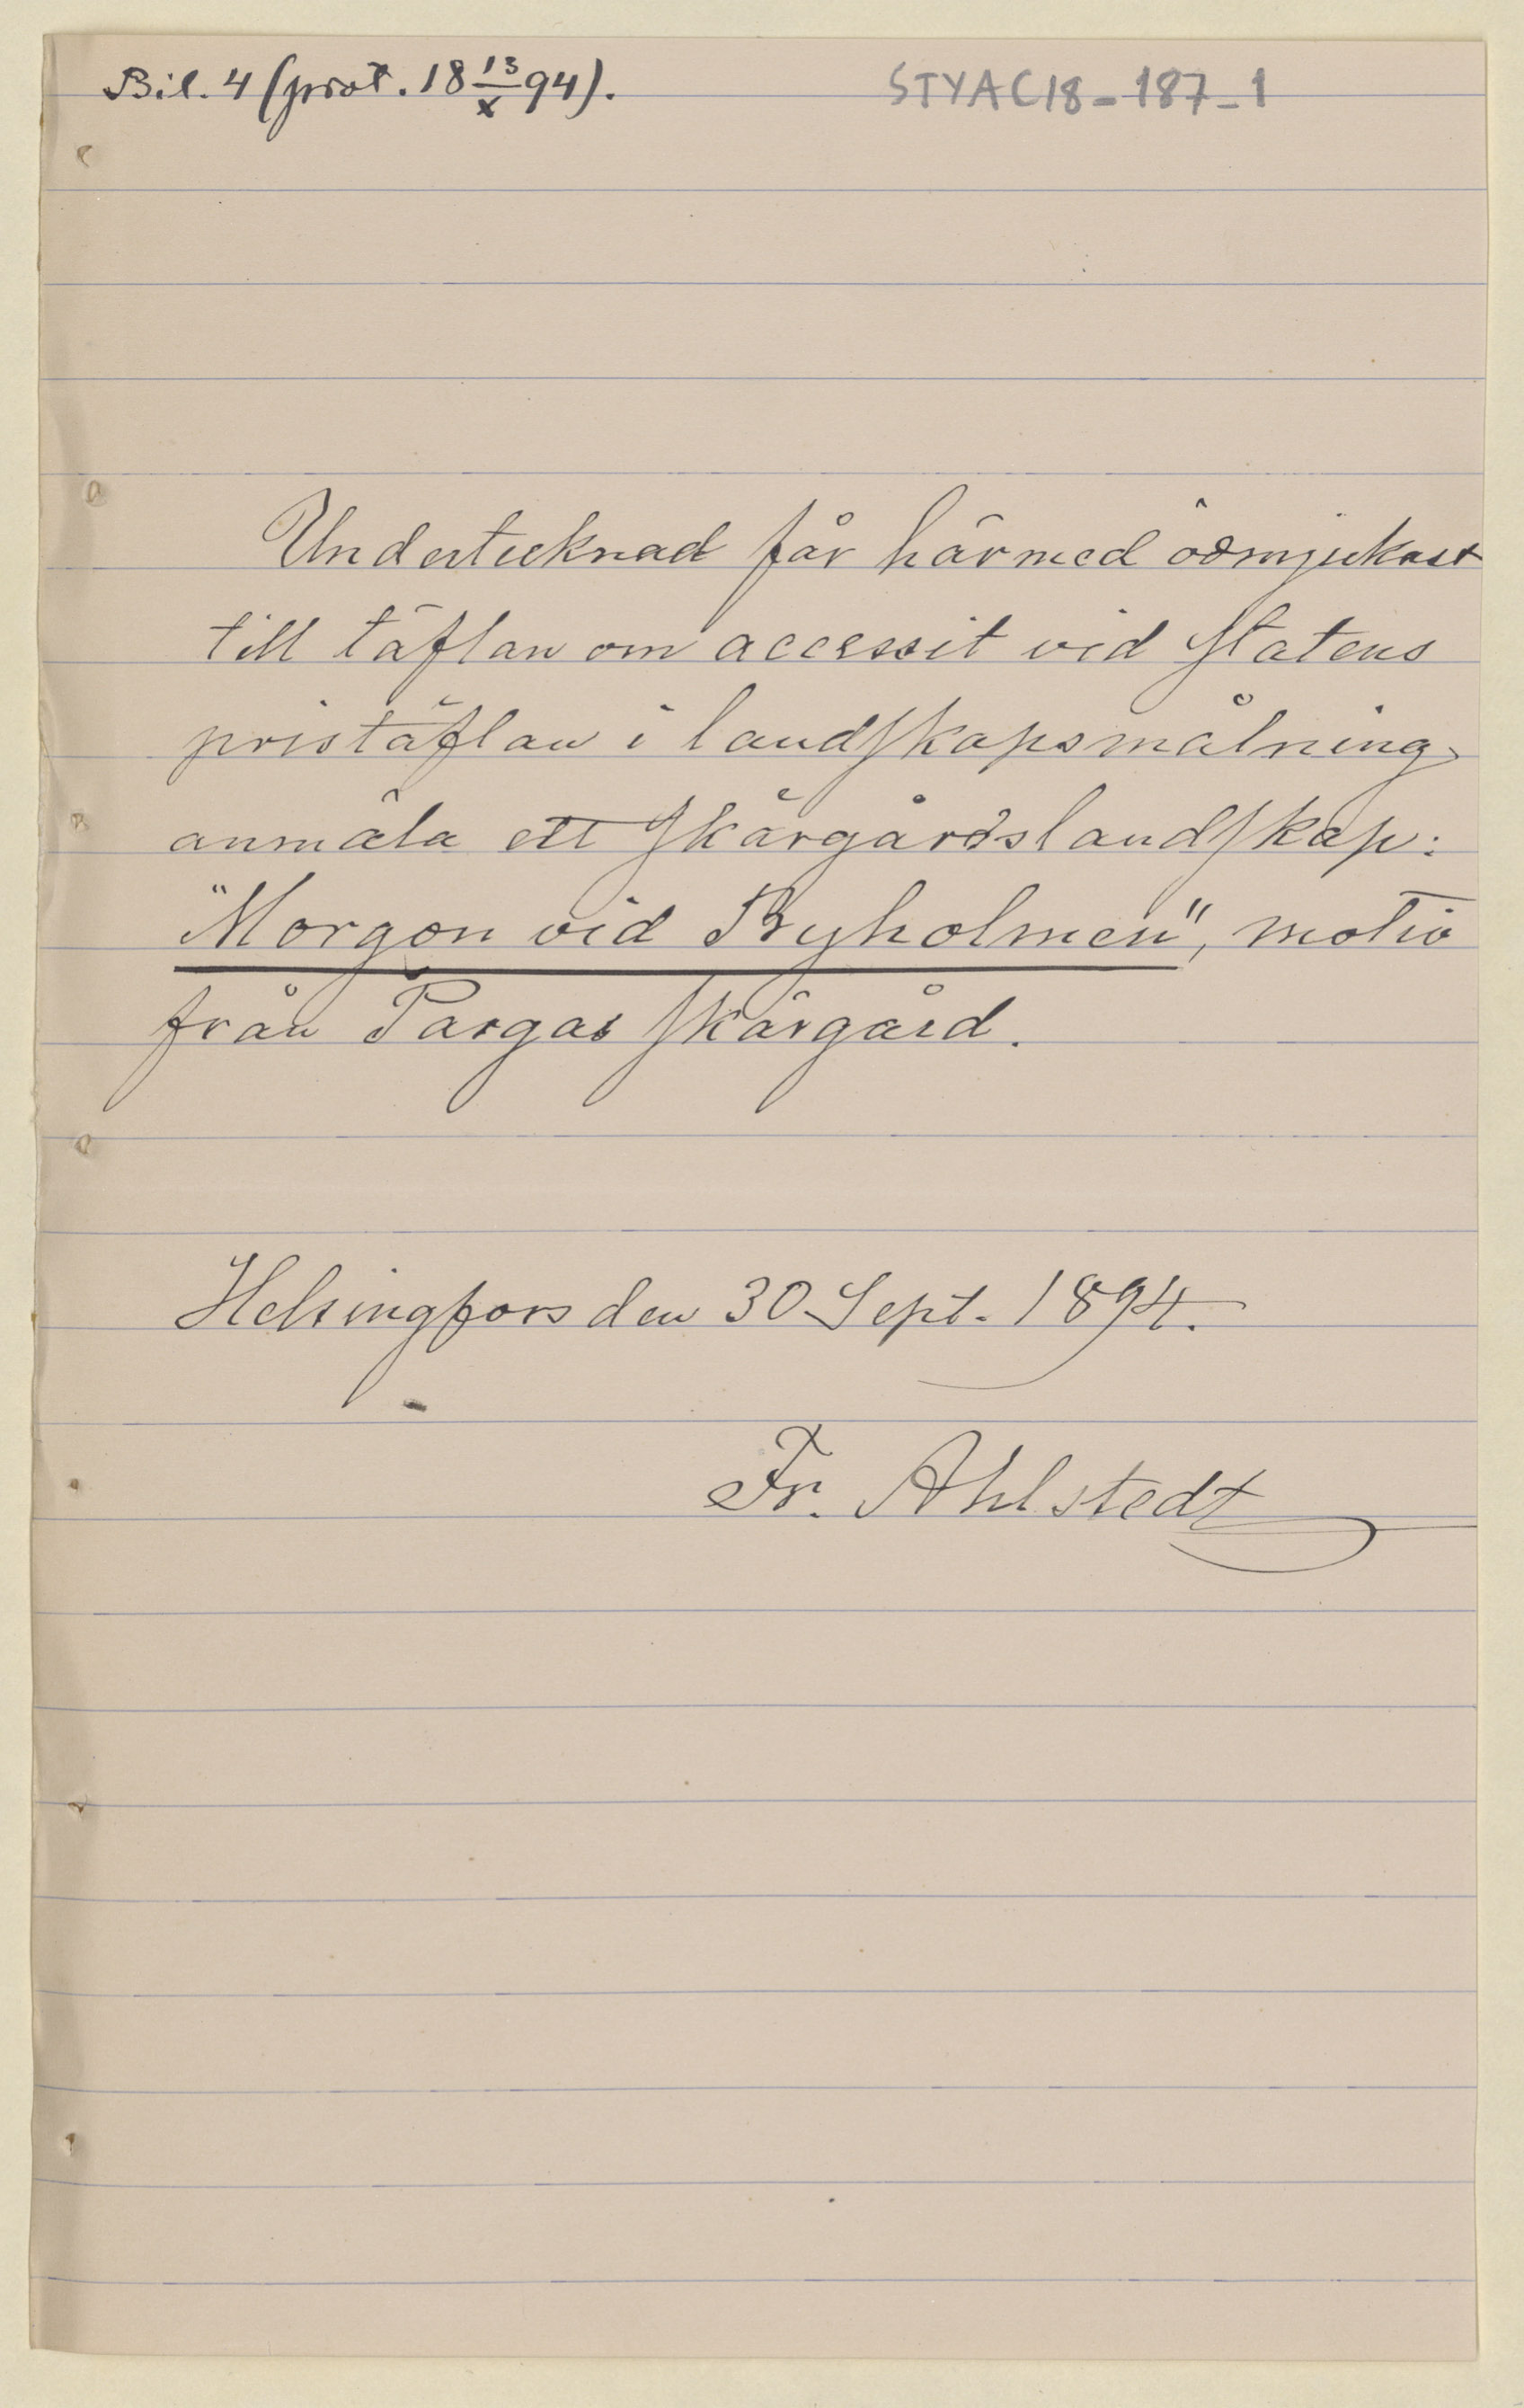 Bil. 4 (prot. 18 13/X 94).
STYAC18-187-1
Undertecknad får härmed ödmjukast
till täflan om accessit vid Statens
pristäflan i landskapsmålning
anmäla ett skärgårdslandskap:
"Morgon vid Byholmen", motiv
från Pargas skärgård.
Helsingfors den 30 Sept. 1894.
Fr. Ahlstedt